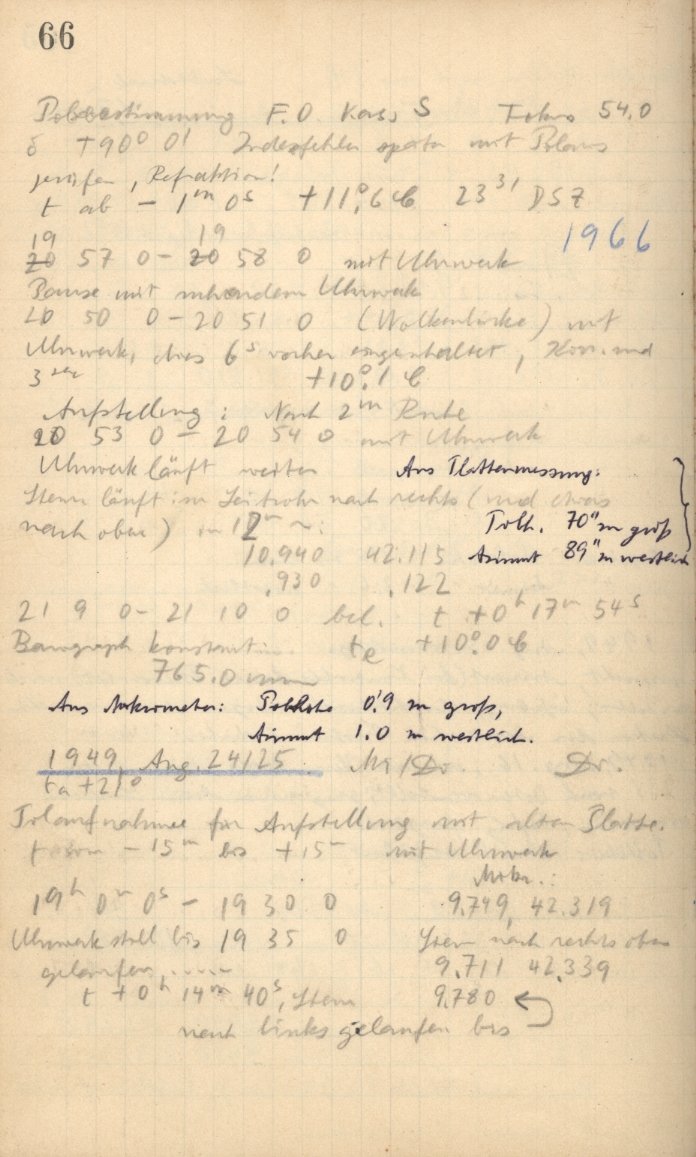 66
Polbestimmung F.O. Kass S Fokus 54,0
δ +90° 0' Indexfehler später mit Polaris
prüfen, Refraktion!
t ab - 1ᵐ 0ˢ +11°,6 C 23 31 DSZ
19 19 1966
20 57 0 - 20 58 0 mit Uhrwerk
Pause mit ruhendem Uhrwerk
20 50 0 - 20 51 0 (Wolkenlücke) mit
Uhrwerk, das 6ˢ vorher eingeschaltet, und
3 +10°,1 C
Aufstellung: Nach 2ᵐ Ruhe
20 53 0 - 20 54 0 mit Uhrwerk
Uhrwerk läuft weiter Aus Plattenmessung:
Stern läuft im Leitrohr nach rechts (und etwas
nach oben) in 12ᵐ Polh. 70" zu groß
10,940 42,115 Azimut 89" zu westlich
,930 ,122
21 9 0 - 21 10 0 bel. t +0ʰ 17ᵐ 54ˢ
Barograph konstant tₑ +10°,0 C
765,0 mm
Aus Mikrometer: Polhöhe 0',9 zu groß,
Azimut 1,0 zu westlich.
1949, Aug. 24/25 Dr.
ta +21°
Polaufnahme für Aufstellung mit alter Platte.
t von - 15ᵐ bis +15ᵐ mit Uhrwerk
Mikr.:
19ʰ 0ᵐ 0ˢ - 19 30 0 9,749, 42,319
Uhrwerk still bis 19 35 0 Stern nach rechts oben
gelaufen, ..... 9,711 42,339
t +0ʰ 14ᵐ 40ˢ, Stern 9,780
nach links gelaufen bis